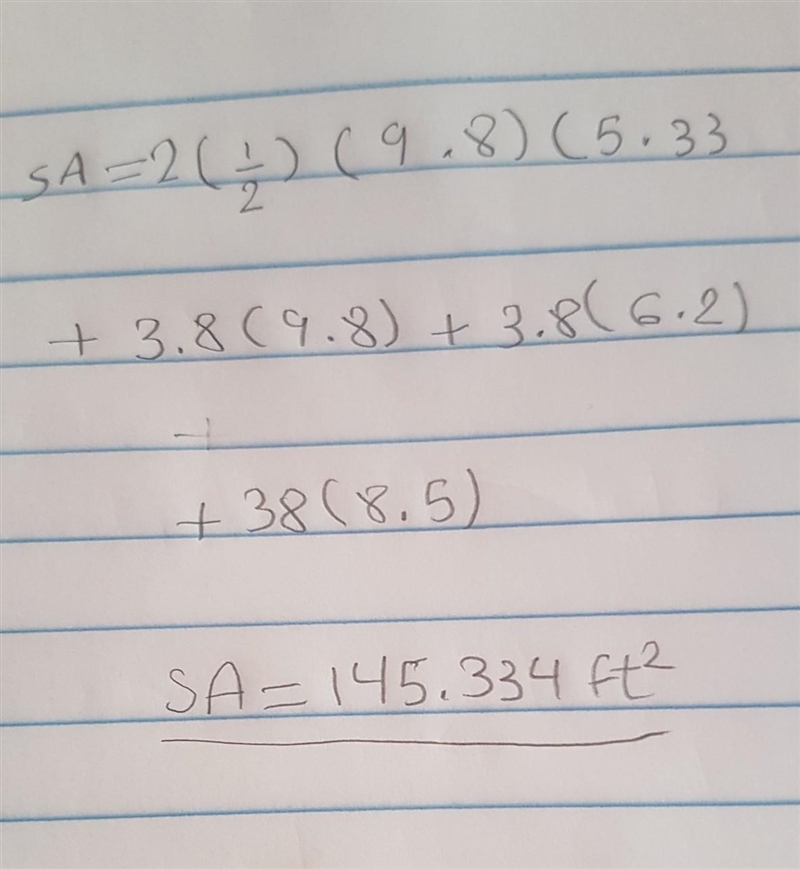 SA=2(1/2)(9.8)(5.33
+ 3.8(9.8) + 3.8(6.2)
+
+ 38(8.5)
SA=145.334 ft²